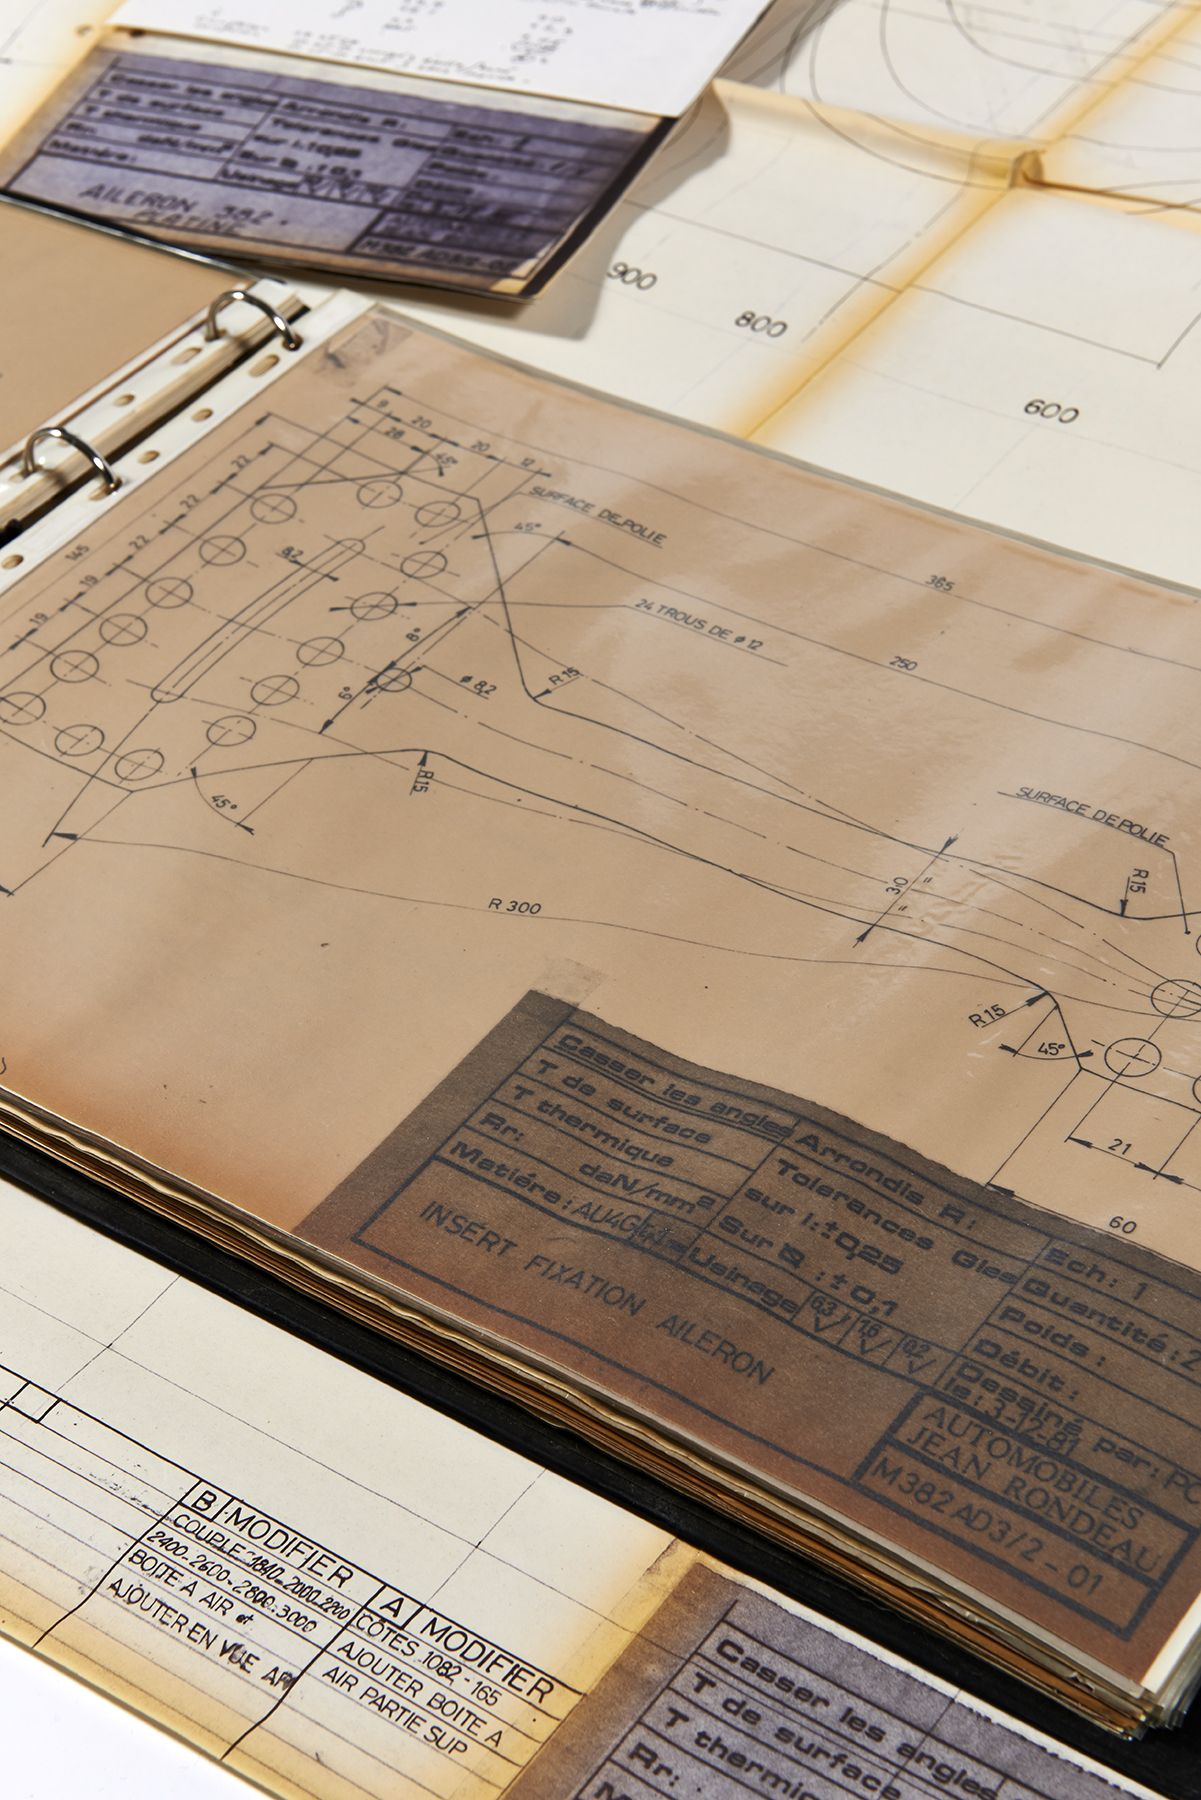 Casser les angles
T de surface
T thermique
Rr: daN/mm²
Matiére:
Arrondis R:
Tolerances Gles
Ech: 1
AILERON 382.
PLATINE
900
800
600
9
20
28
45°
20
12
22
22
22
19
19
145
8,2
SURFACE DEPOLIE
45°
365
24 TROUS DE ø 12
250
8°
6°
ø 8,2
R 15
R 15
45°
SURFACE DEPOLIE
30
R 15
R 300
R 15
45°
21
60
Casser les angles
T de surface
T thermique
Rr: daN/mm²
Matiére: AU4G
Arrondis R:
Tolerances Gles
sur l: ±0,25
Sur Q: ±0,1
Usinage 6.3 1.6 0.2
Ech: 1
Quantité: 2
Poids:
Débit:
Dessiné par: PO
le: 3-12-81
INSERT FIXATION AILERON
AUTOMOBILES
JEAN RONDEAU
M382 AD3/2-01
B MODIFIER
COUPLE-1840-2000-2200
2400-2600-2800-3000
BOITE A AIR et
AJOUTER EN VUE AR
A MODIFIER
CÔTES 1082-165
AJOUTER BOITE A
AIR PARTIE SUP
Casser les angles
T de surface
T thermique
Rr: